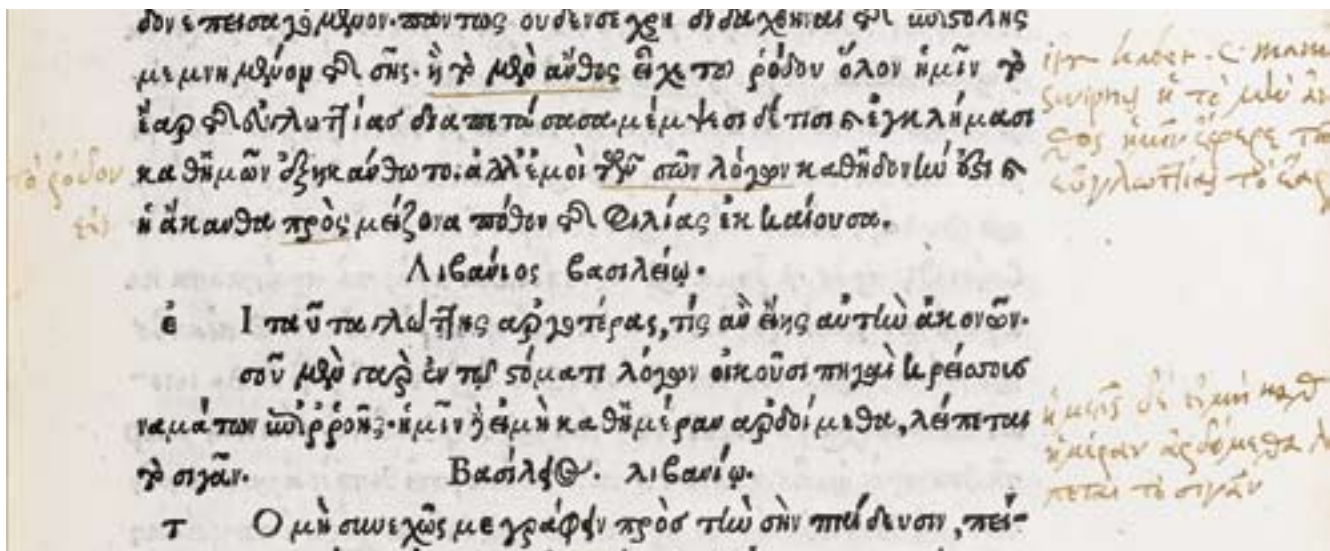 δον ἐπεισαγόμενον. πάντως οὐδέν σε χρὴ διδαχθῆναι τῆς ἐπιστολῆς
μεμνημένον τῆς σῆς. ἢ τὸ μὲν ἄνθος εἶχε τοῦ ῥόδου ὅλον ἡμῖν τὸ
ἔαρ τῆς εὐγλωττίας διαπετάσασα. μέμψεσι δέ τισι καὶ ἐγκλήμασι
τὸ ῥόδον καθ' ἡμῶν ἐξηκάνθωτο. ἀλλ' ἐμοὶ τῶν σῶν λόγων καθ' ἡδονήν ἐστι καὶ
ἡ ἄκανθα πρὸς μείζονα πόθον τῆς φιλίας ἐκκαίουσα.
Λιβάνιος βασιλείῳ.
ἐ Ι ταῦτα γλώττης ἀργοτέρας, τίς ἂν εἴης αὐτὴν ἀκονῶν.
σοῦ μὲν γὰρ ἐν τῷ στόματι λόγων οἰκοῦσι πηγαὶ κρείττους
ναμάτων ἐπιρροῆς. ἡμῖν δὲ εἰ μὴ καθ' ἡμέραν ἀρδοίμεθα, λείπεται
τὸ σιγᾶν. Βασίλειος. λιβανίῳ.
τ Ο μὴ συνεχῶς με γράφειν πρὸς τὴν σὴν παίδευσιν, πεί-
ἢ τὸ μὲν ἄν
θος ἡμῖν ἔφερε τῆς
εὐγλωττίας τὸ ἔαρ
ἡμεῖς δὲ εἰ μὴ καθ'
ἡμέραν ἀρδόμεθα λεί
πεται τὸ σιγᾶν